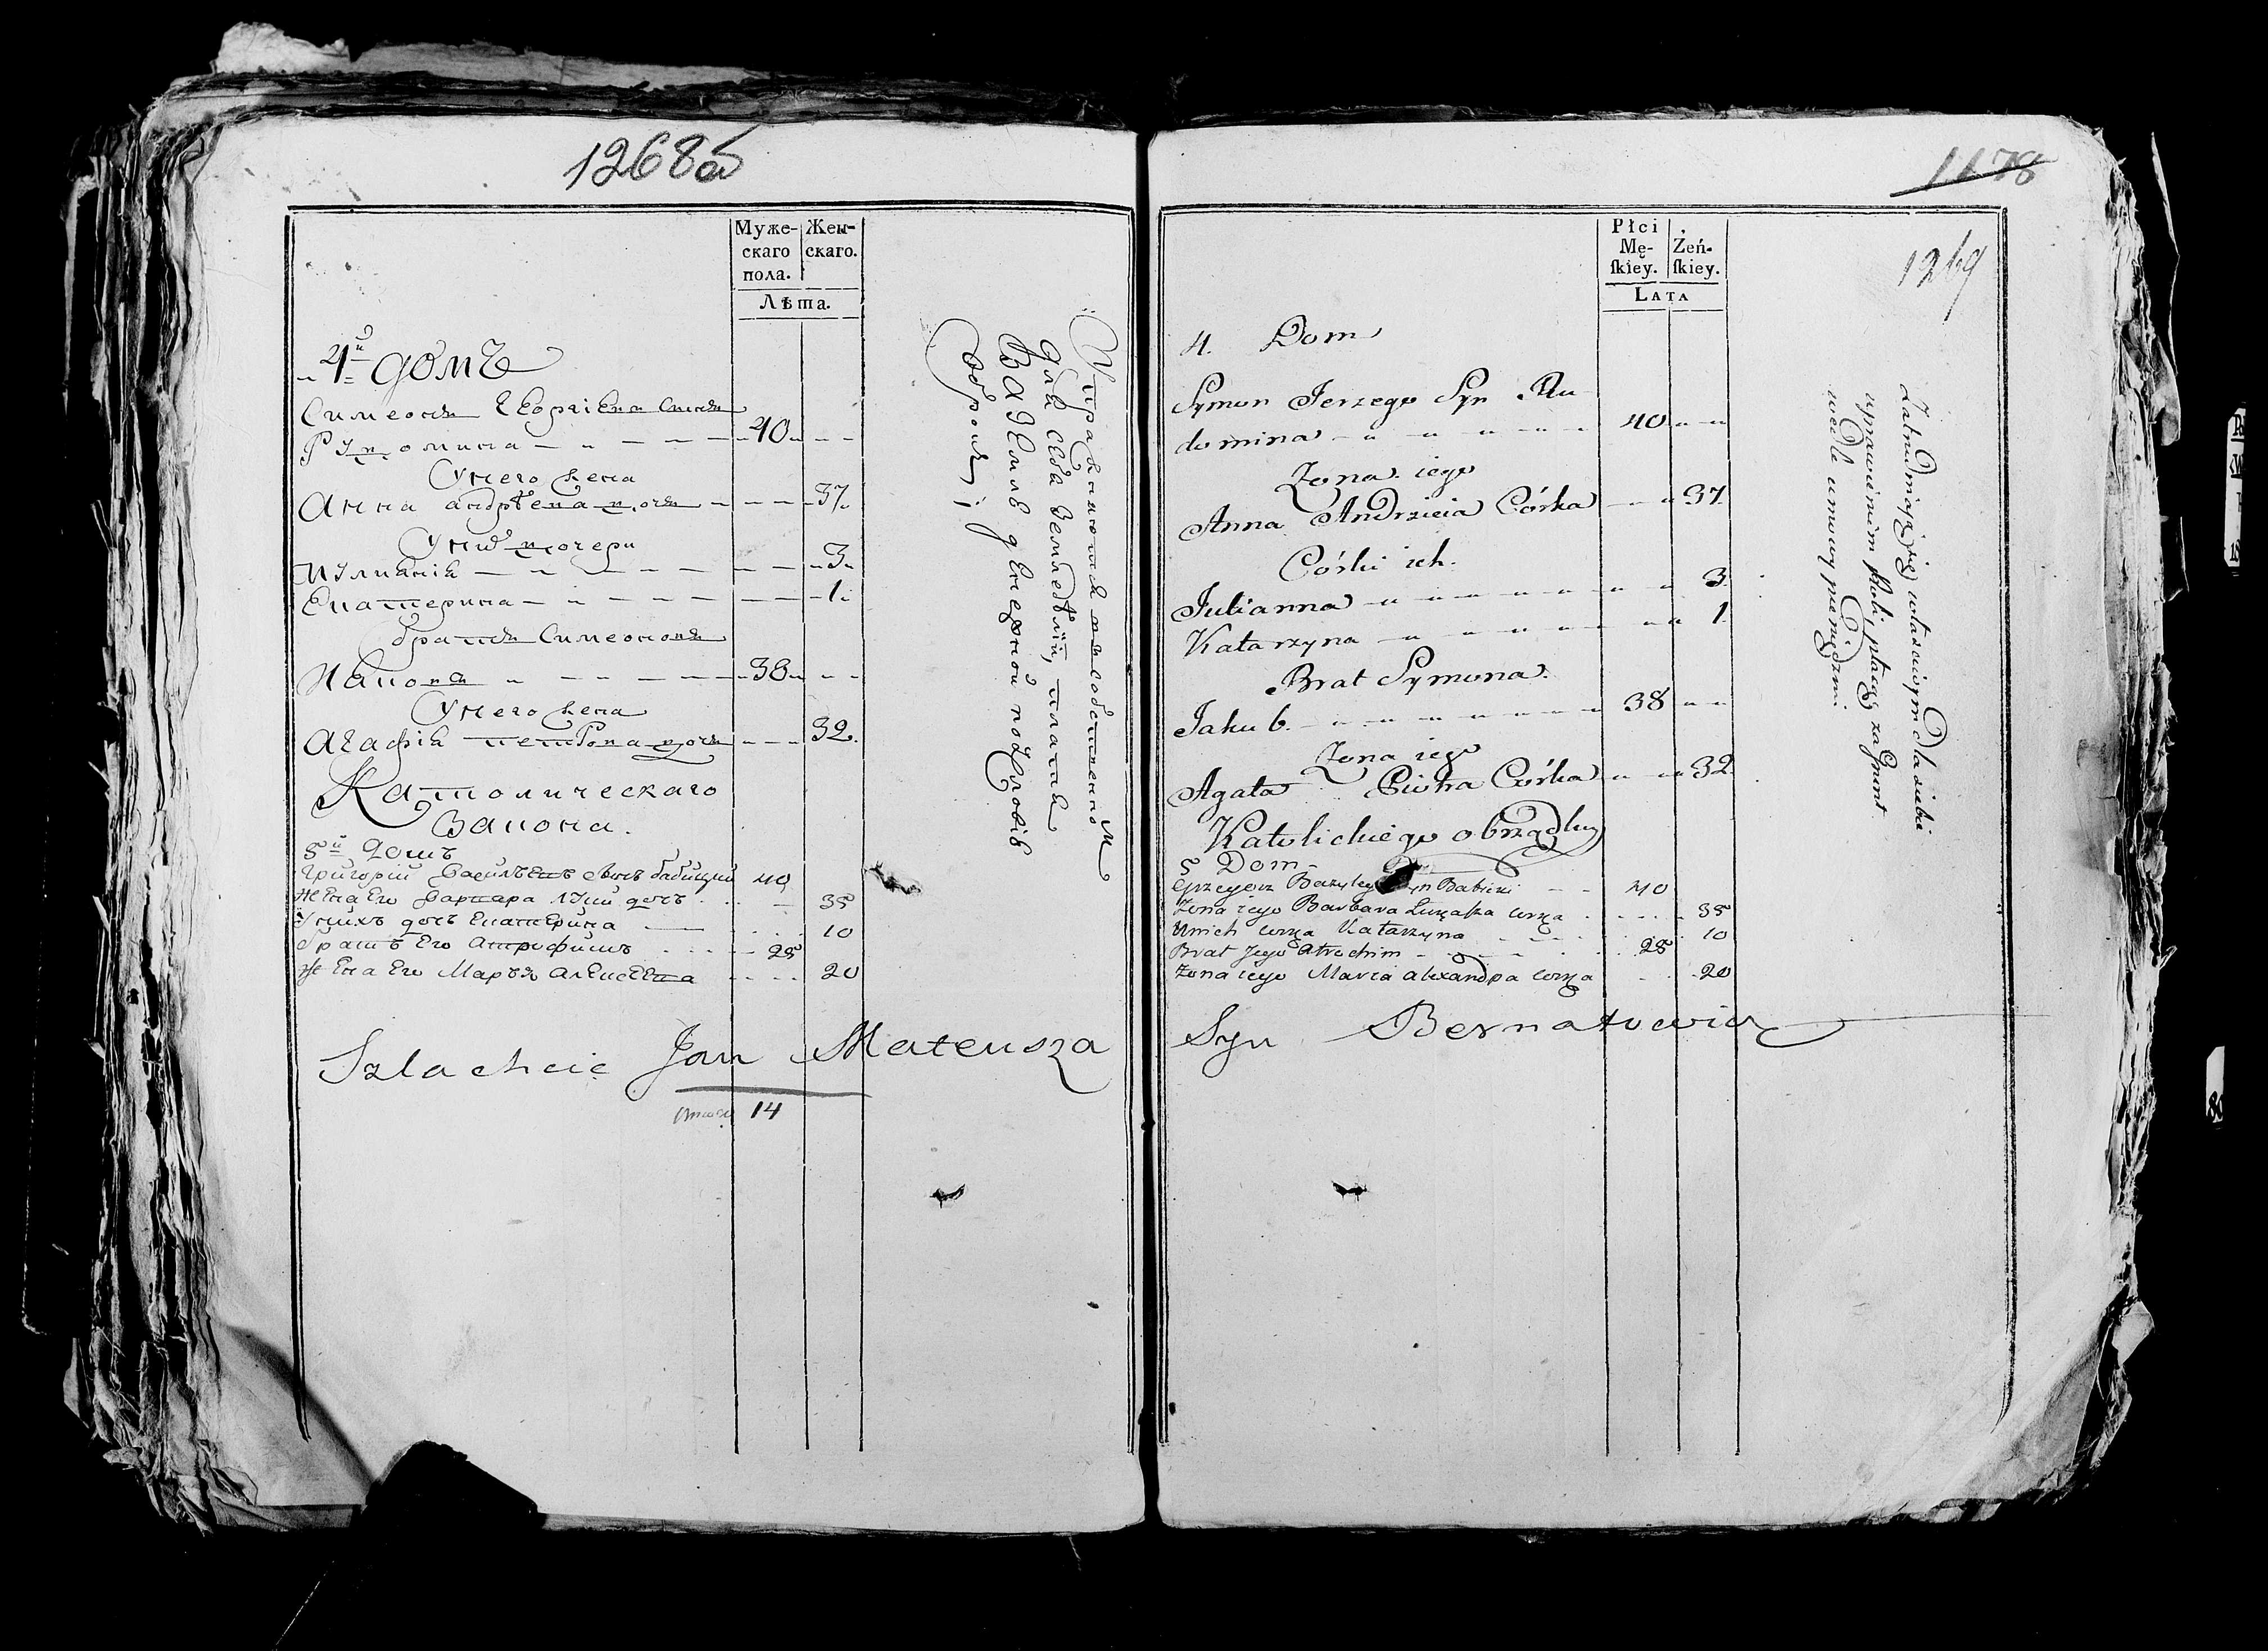 1268об
Муже-
скаго
пола.
Жен-
скаго.
Лѣта.
4й домъ
Симеонъ Георгіевъ Сынъ
Рудомина 40
У него жена
Анна андрѣева дочь 37
У нихъ дочери
Иулианія 3
Екатерина 1
братъ Симеоновъ
Иаковъ 38
У него жена
Агафія петрова дочь 32
Католическаго
Закона.
5й домъ
Григорій Васильевъ сынъ бабицкій 40
жена Его Варвара луки дочь 35
У нихъ дочь Екатерина 10
братъ Его Атрофимъ 25
жена Его Марья алексеева 20
Упражняются въ собственно
для себя земледѣліи, платя
за земли денежной по условію
оброкъ
Szlachcic Jan Mateusza
14
1178
1269
Płci
Mę-
ſkiey.
Żeń-
ſkiey.
Lata
4. Dom
Symon Jerzego Syn Ru
domina 40
Zona iego
Anna Andrzieia Córka 37
Córki ich.
Julianna 3
Katarzyna 1
Brat Symona.
Jakub 38
Zona iego
Agata Piotra Córka 32
Katolickiego obrządku
5 Dom
Grzegorz Bazyleg Syn Babicki 40
Zona iego Barbara Łukasza corka 35
Unich corka Katarzyna 10
Brat Jego Atrochim 25
Zona iego Maria alexandra corka 20
Zatrudniaią się własnwym dla siebie
uprawieniem Roli, płacąc za Grunt
wedle umowy pieniędzmi
Syn Bernatowicz